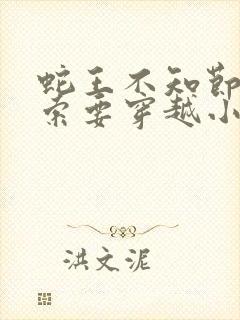 蛇王不知节
索要穿越小
洪文泥